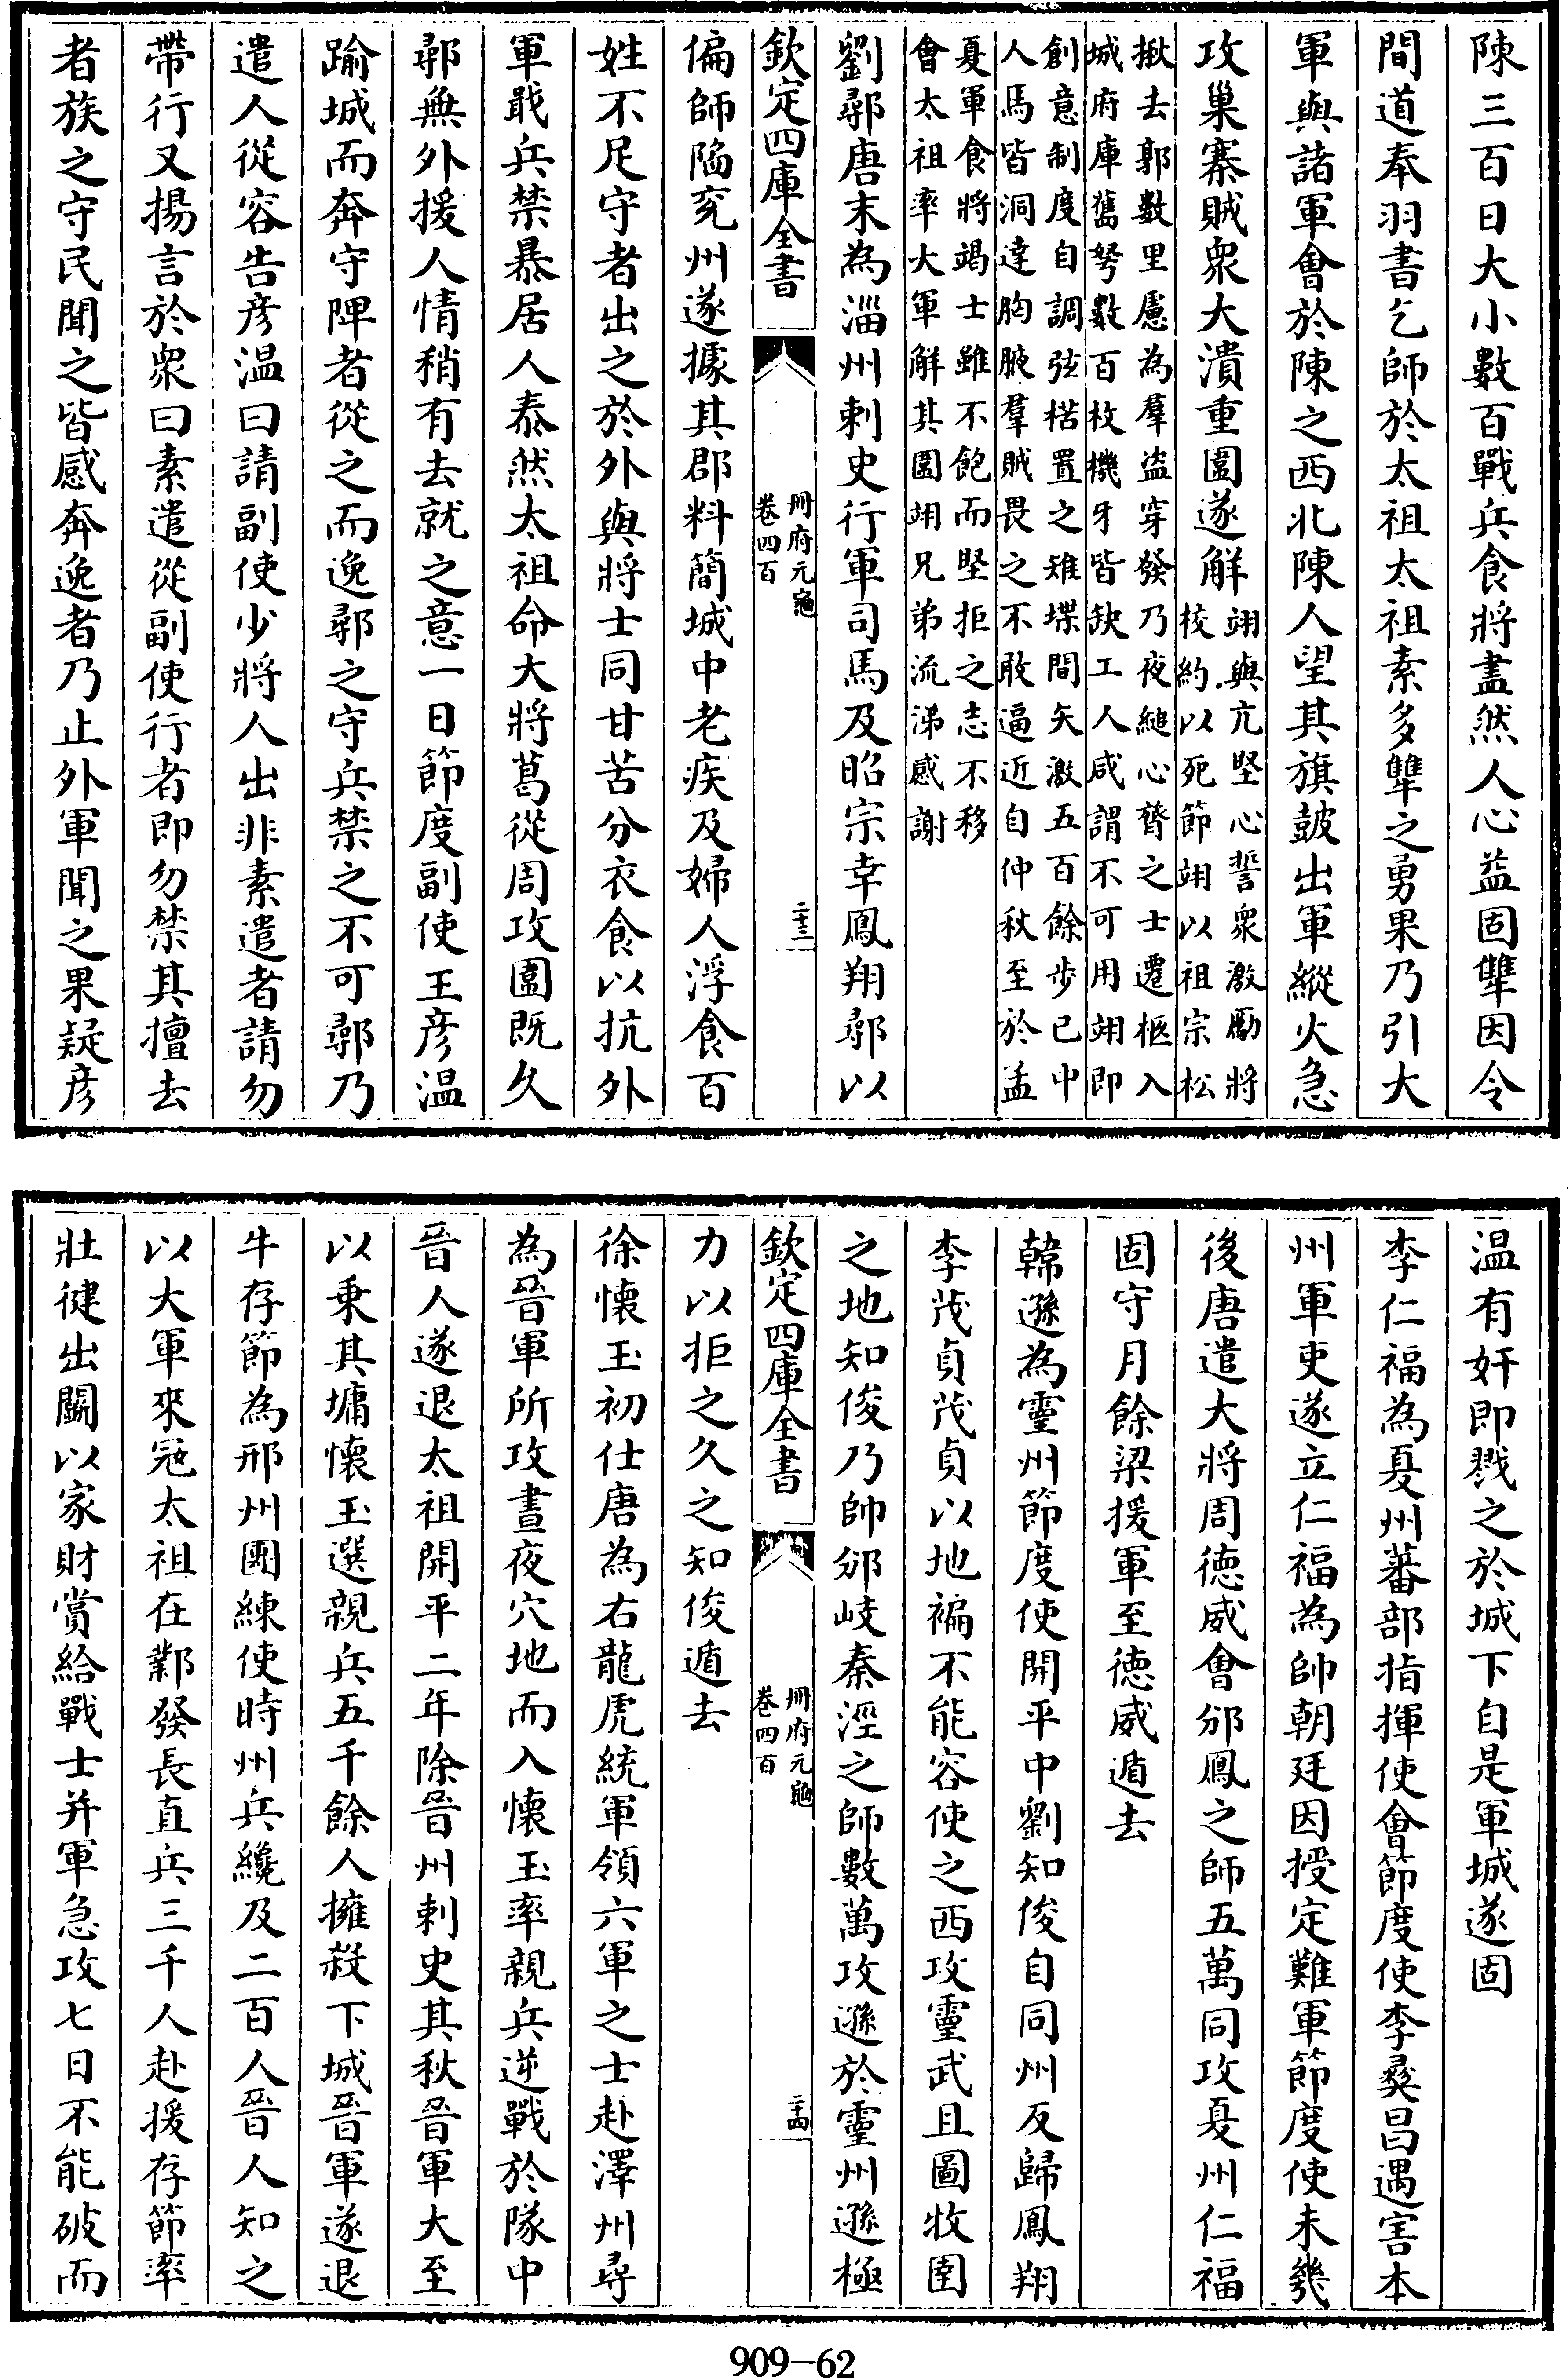 陳三百日大小數百戰兵食將盡然人心益固犨因令
間道奉羽書乞師於太祖太祖素多犨之勇果乃引大
軍與諸軍會於陳之西北陳人望其旗鼓出軍縱火急
攻巢寨賊衆大潰重圍遂解
翊與亢堅心誓衆激勵將
校約以死節翊以祖宗松
揪去郭數里慮為羣盜穿發乃夜縋心膂之士遷柩入
城府庫舊弩數百枚機牙皆缺工人咸謂不可用翊即
創意制度自調弦楛置之雉堞間矢激五百餘步已中
人馬皆洞達胸腋羣賊畏之不敢逼近自仲秋至於孟
夏軍食將竭士雖不飽而堅拒之志不移
會太祖率大軍解其圍翊兄弟流涕感謝
劉鄩唐末為淄州刺史行軍司馬及昭宗幸鳳翔鄩以
欽定四庫全書
冊府元龜
卷四百
二十三
偏師陷兖州遂據其郡料簡城中老疾及婦人浮食百
姓不足守者出之於外與將士同甘苦分衣食以抗外
軍戢兵禁暴居人泰然太祖命大將葛從周攻圍既久
鄩無外援人情稍有去就之意一日節度副使王彦温
踰城而奔守陴者從之而逸鄩之守兵禁之不可鄩乃
遣人從容告彦温曰請副使少將人出非素遣者請勿
帶行又揚言於衆曰素遣從副使行者即勿禁其擅去
者族之守民聞之皆感奔逸者乃止外軍聞之果疑彦
温有奸即戮之於城下自是軍城遂固
李仁福為夏州蕃部指揮使會節度使李彜昌遇害本
州軍吏遂立仁福為帥朝廷因授定難軍節度使未幾
後唐遣大將周德威會邠鳳之師五萬同攻夏州仁福
固守月餘梁援軍至德威遁去
韓遜為靈州節度使開平中劉知俊自同州反歸鳳翔
李茂貞茂貞以地褊不能容使之西攻靈武且圖牧圉
之地知俊乃帥邠岐秦涇之師數萬攻遜於靈州遜極
欽定四庫全書
冊府元龜
卷四百
二十四
力以拒之久之知俊遁去
徐懷玉初仕唐為右龍虎統軍領六軍之士赴澤州尋
為晉軍所攻晝夜穴地而入懷玉率親兵逆戰於隊中
晉人遂退太祖開平二年除晉州刺史其秋晉軍大至
以乗其墉懷玉選親兵五千餘人擁殺下城晉軍遂退
牛存節為邢州團練使時州兵纔及二百人晉人知之
以大軍來冦太祖在鄴發長直兵三千人赴援存節率
壯健出鬭以家財賞給戰士并軍急攻七日不能破而
909-62